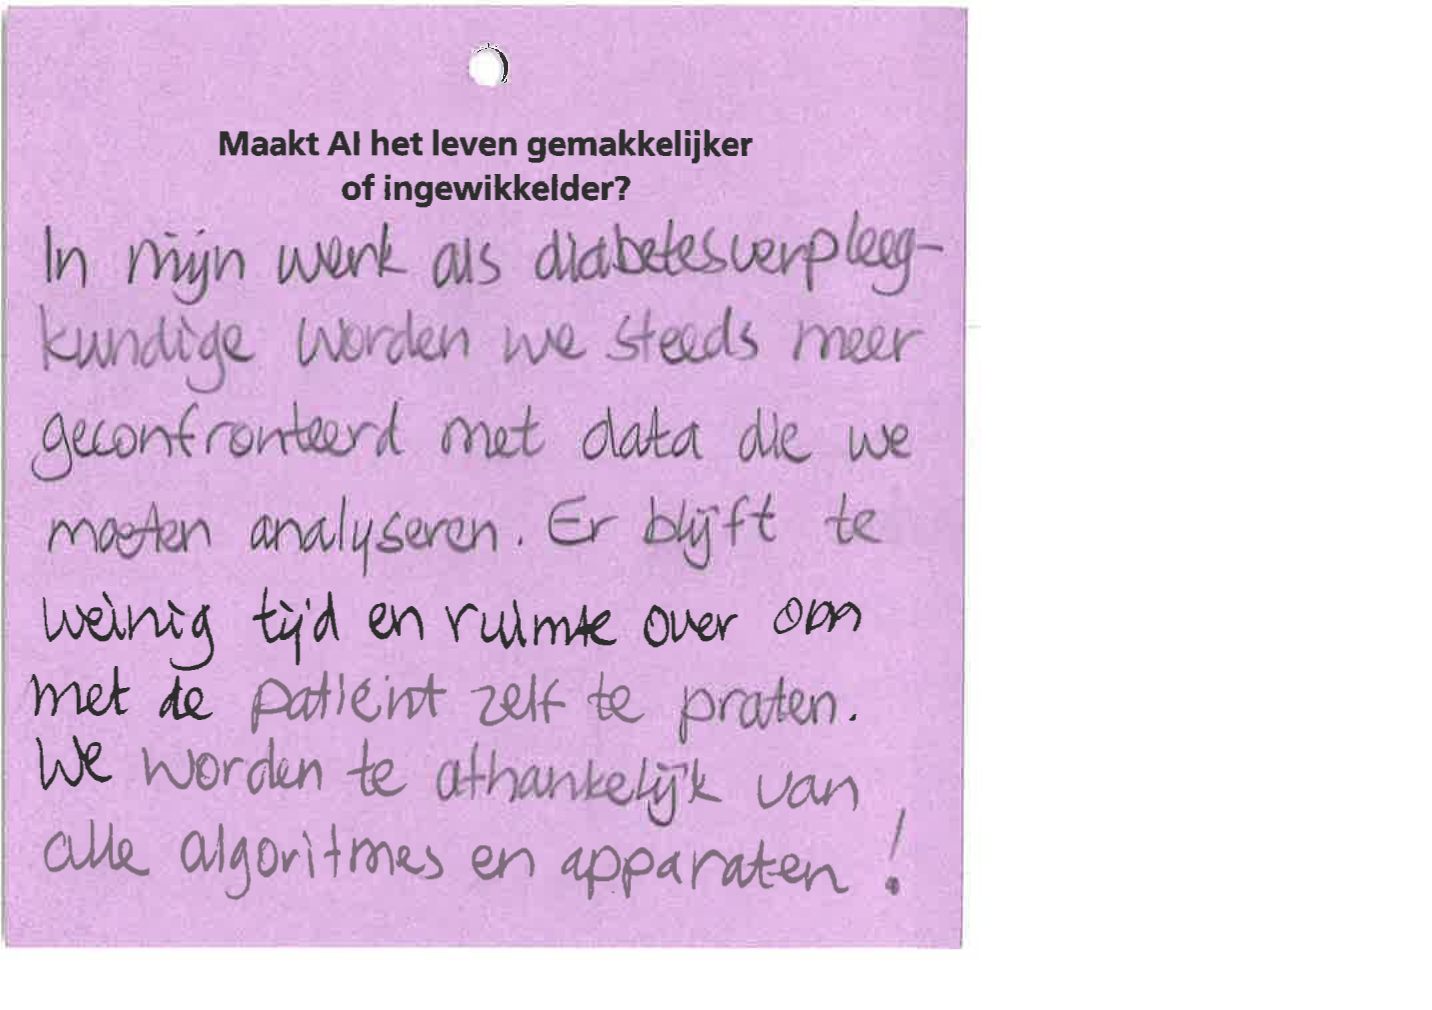 Maakt AI het leven gemakkelijker
of ingewikkelder?
In mijn werk als diabetesverpleeg-
kundige worden we steeds meer
geconfronteerd met data die we
moeten analyseren. Er blijft te
weinig tijd en ruimte over om
met de patiënt zelf te praten.
We worden te afhankelijk van
alle algoritmes en apparaten!